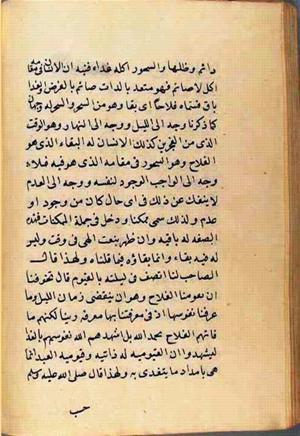 دائم وظلها والسحور اكله غداء فنبه ان الانسان في بقا
اكل لا صائم فهو متعد بالذات صائم بالعرض فالغذا
باق فسماه فلاحا اى بقا وهو من السحر والسحر له وجهان
كما ذكرنا وجه الى الليل ووجه الى النهار وهو الوقت
الذى من الفجرين كذلك الانسان له البقاء الذى هو
الفلاح وهو السحور فى مقامه الذى هو فيه فله
وجه الى الواجب الوجود لنفسه ووجه الى العدم
لا ينفك عن ذلك فى اى حال كان من وجود او
عدم ولذلك سمى ممكنا ودخل فى جملة الممكنات فهذه
الصفه له باقيه وان ظهر بنعت الهى فى وقت وليس
له فيه بقاء وانما بقاؤه فيما قلناه ولهذا قال
الصاحب لما اتصف فى ليلته بالقيوم قال تخوفنا
ان يفوتنا الفلاح وهو ان ينقضى زمان الليل وما
عرفنا نفوسنا اذ فى معرفتنا بها معرفة ربنا لكنهم ما
فاتهم الفلاح بحمد الله بل اشهدهم الله نفوسهم بالغذا
ليشهدوا ان القيوميه له ذاتيه وقيوميه العبد انما
هى بامداد ما يتغدى به ولهذا قال صلى الله عليه وسلم
حسب